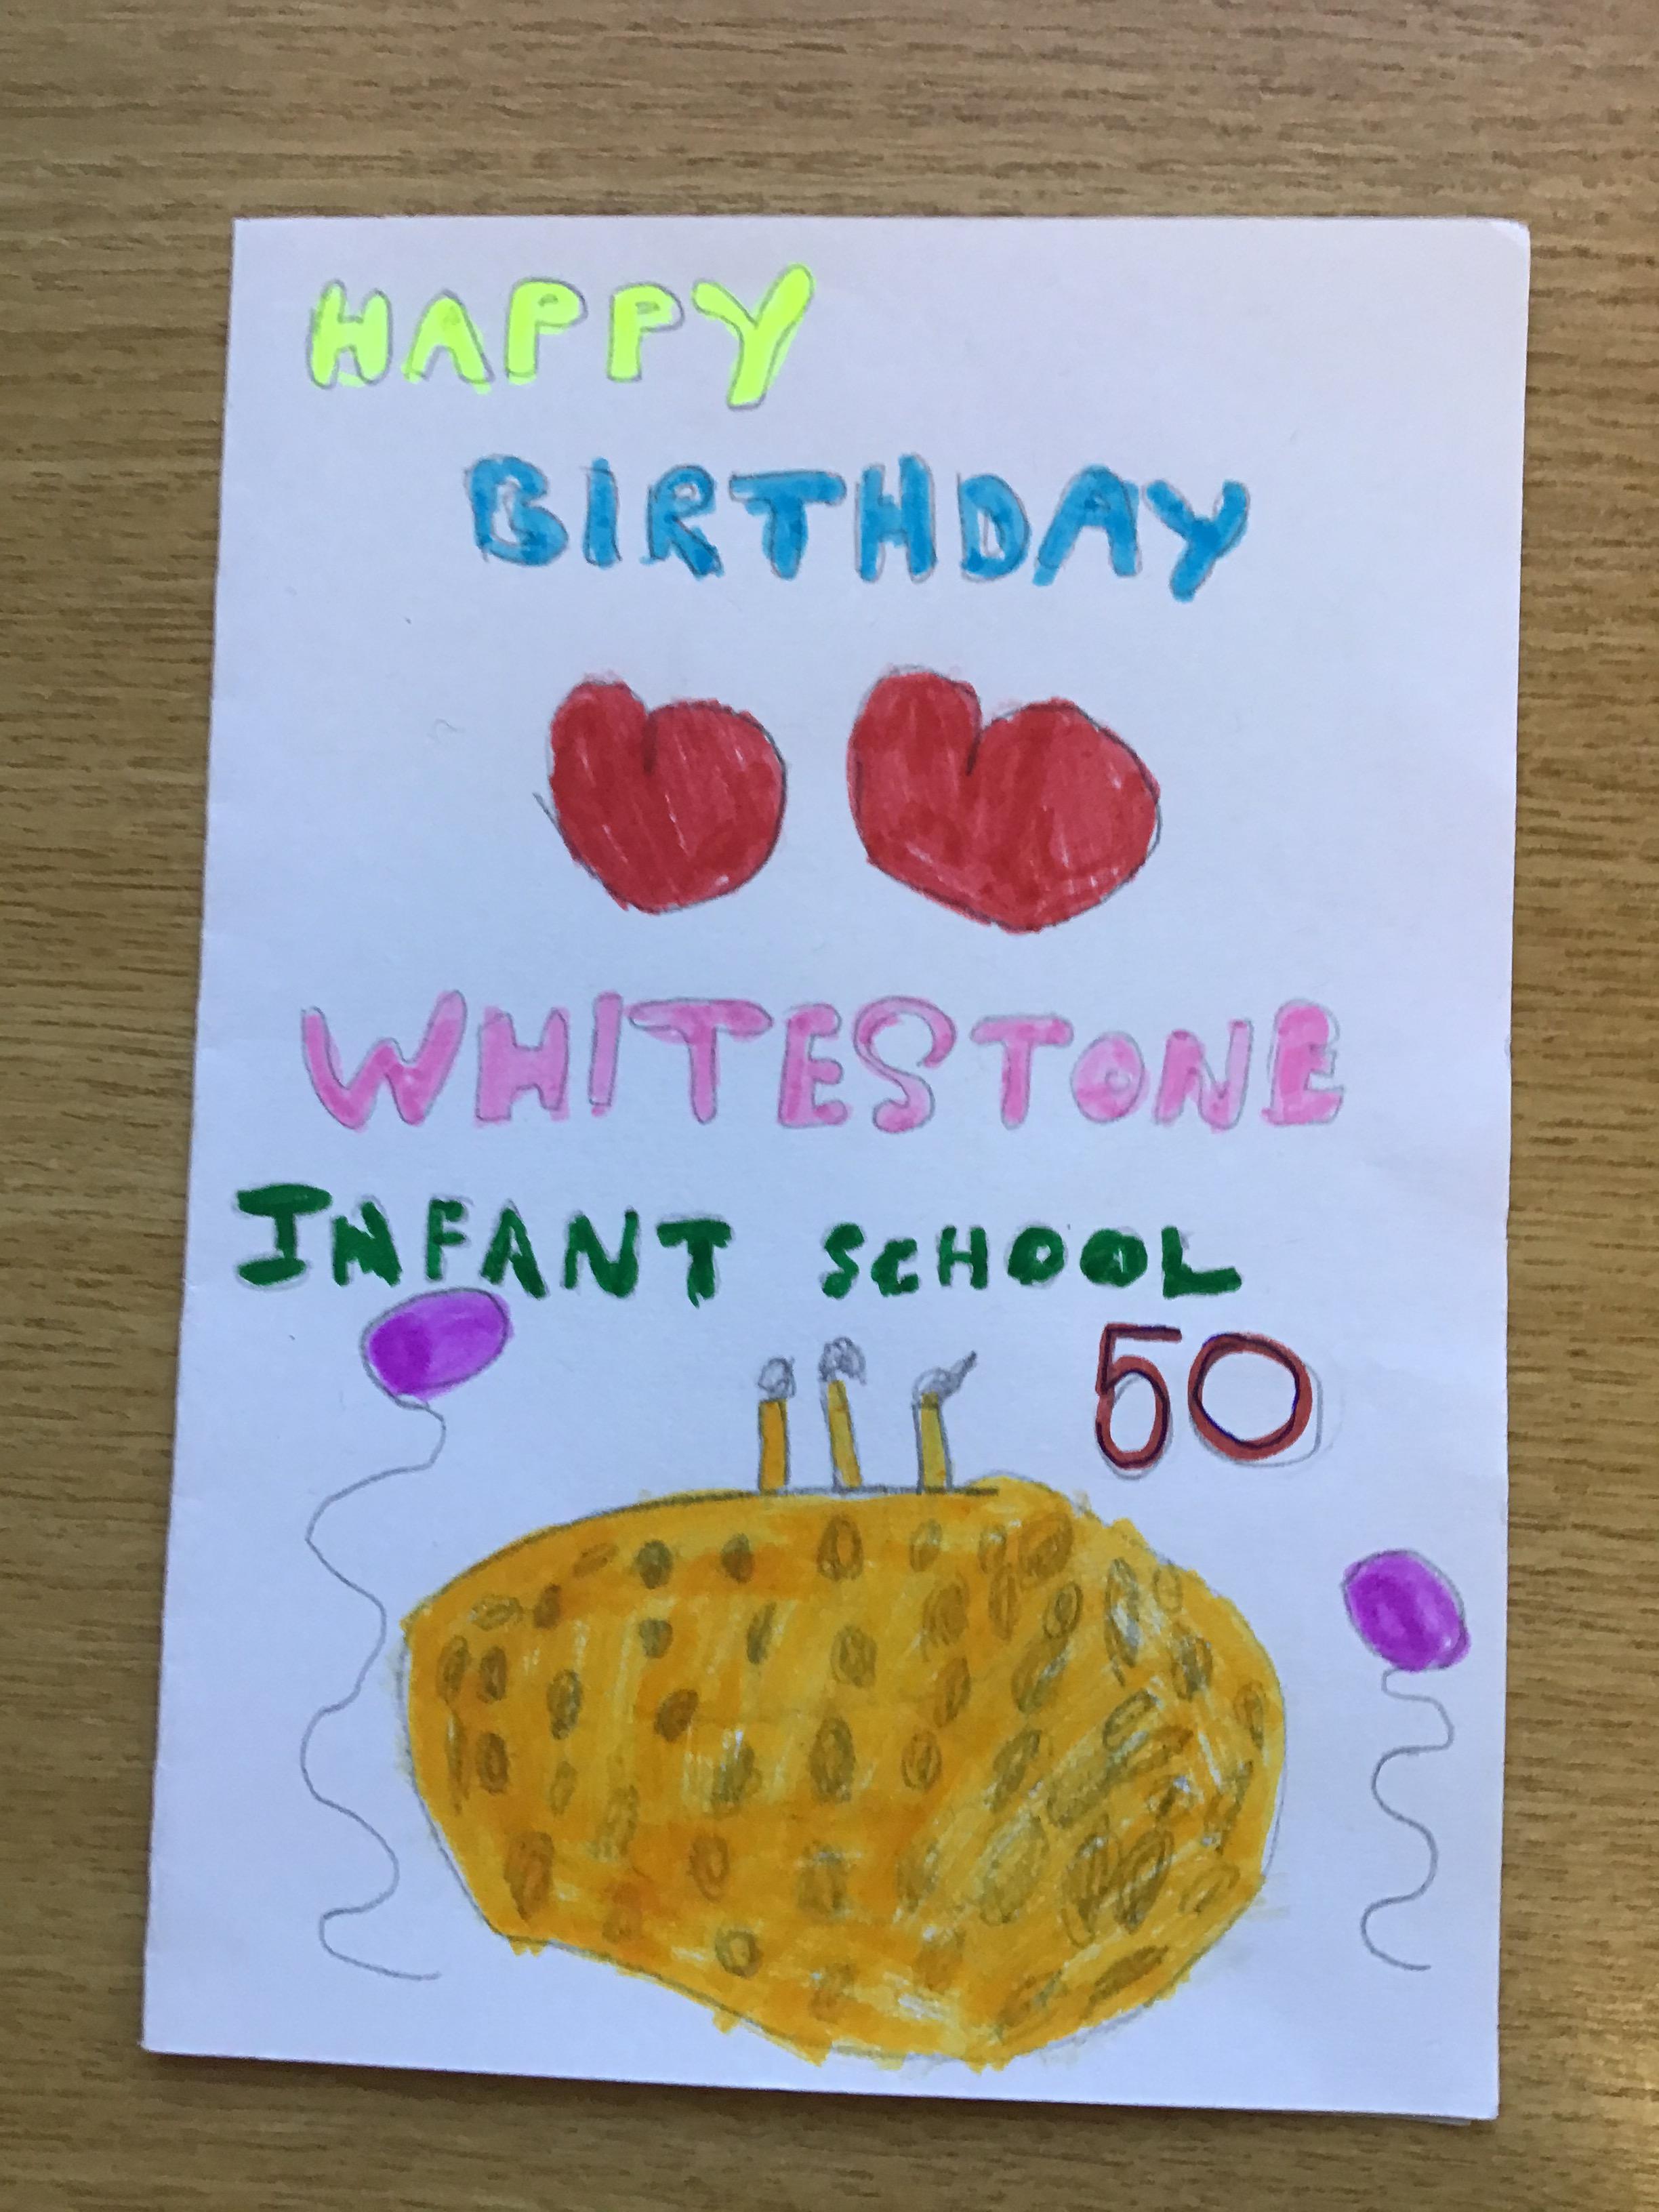 HAPPY
BIRTHDAY
WHITESTONE
INFANT SCHOOL
50